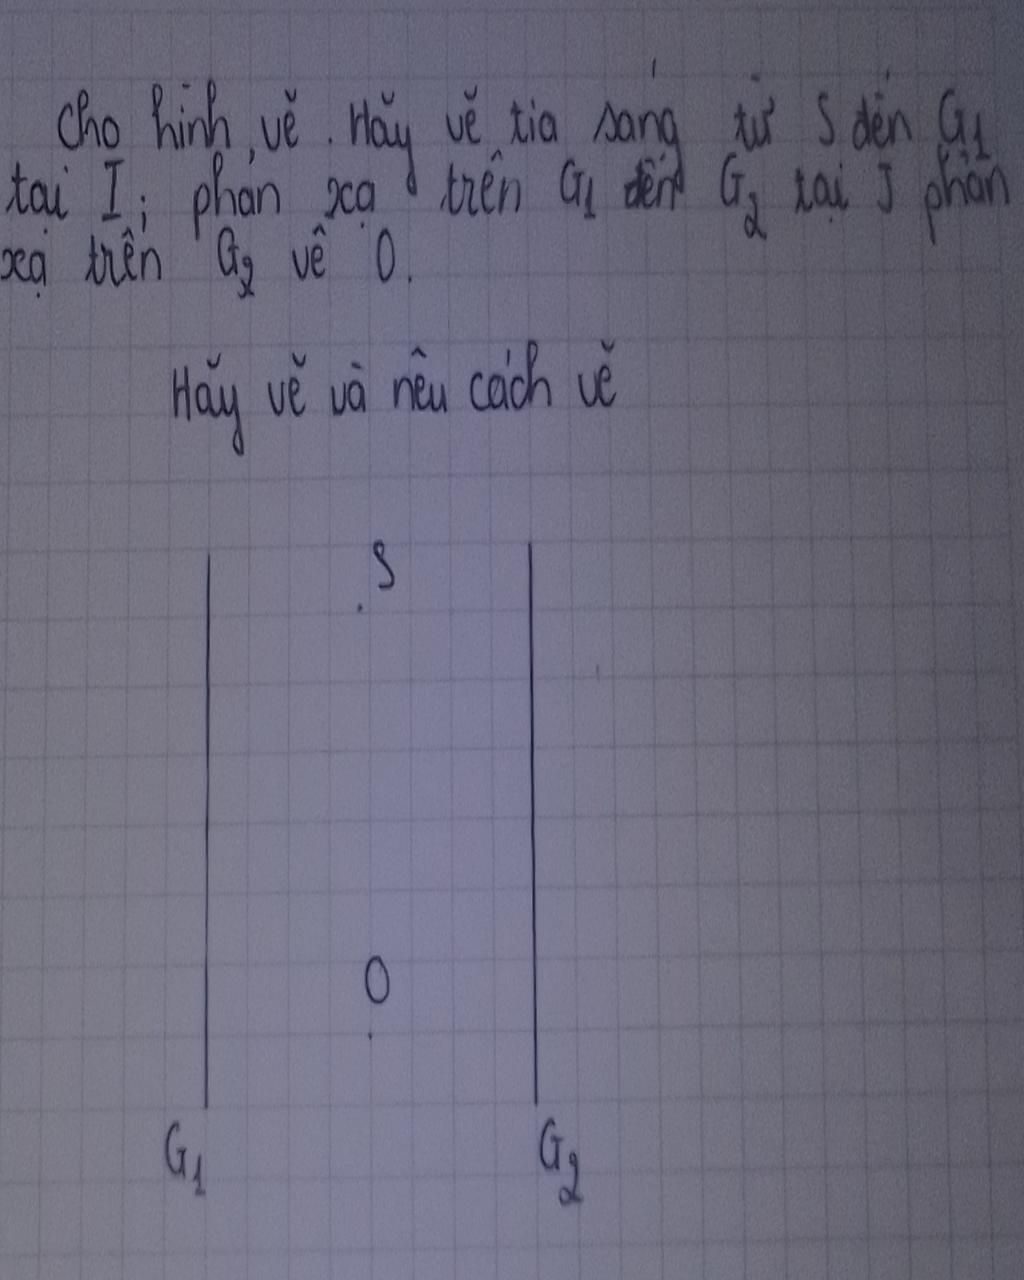 Cho hình vẽ. Hãy vẽ tia sáng từ S đến G1
tại I; phản xạ trên G1 đến G2 tại J phản
xạ trên G2 về O.
Hãy vẽ và nêu cách vẽ
S
O
G1 G2